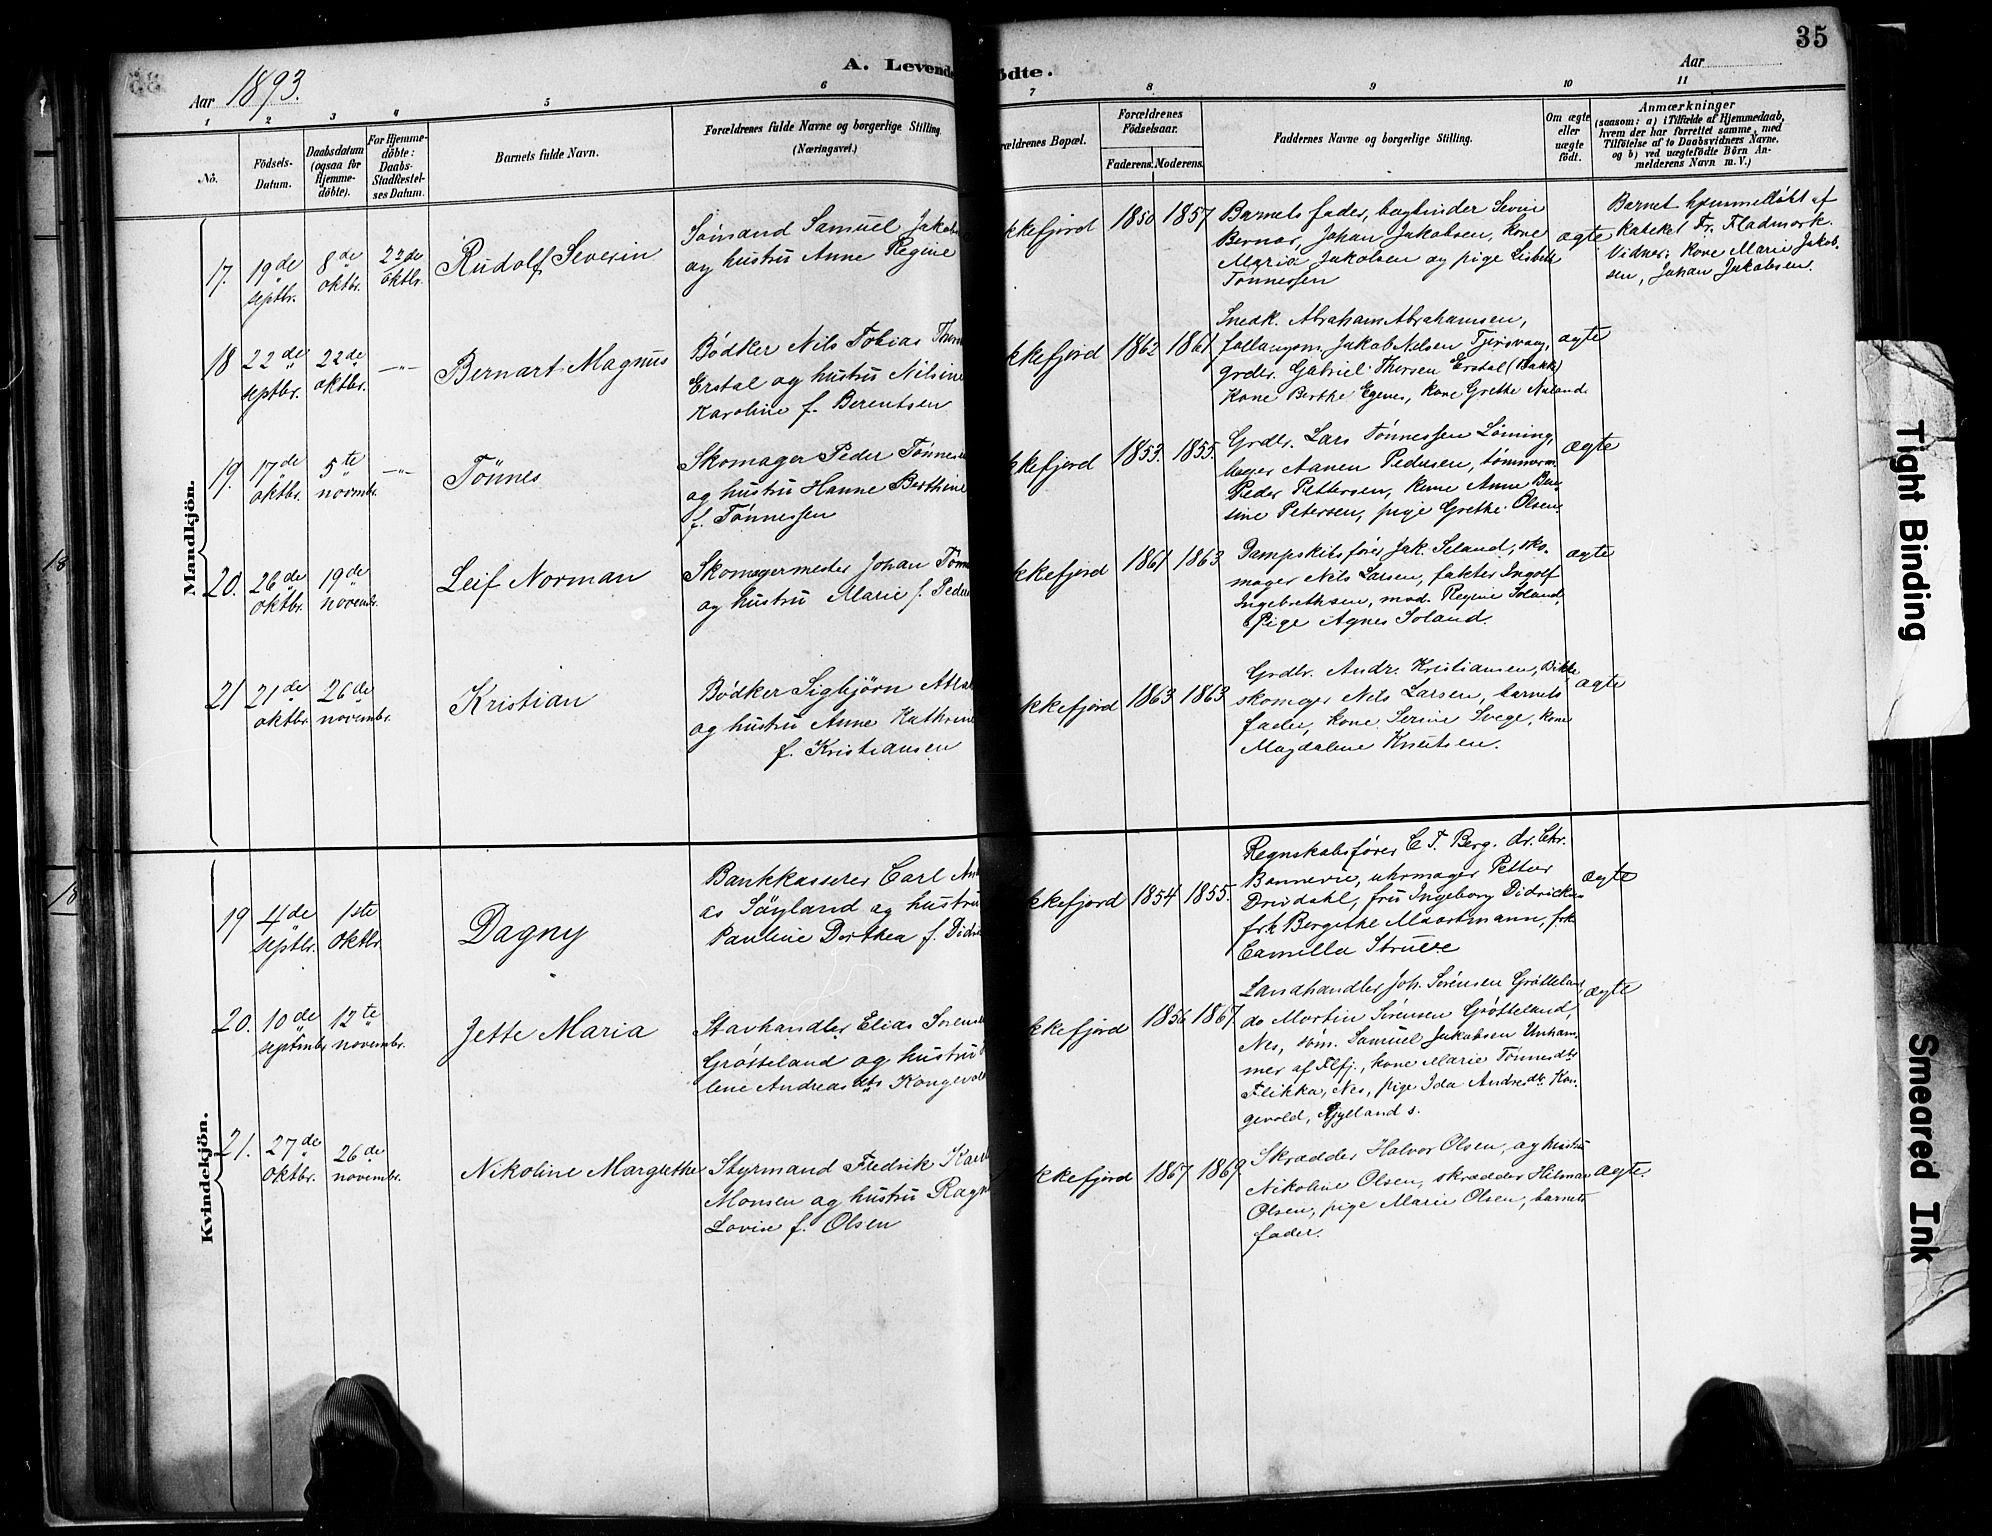 35
A. Levende
ødte.
Aar 1893.
Aar
1 2 3 4 5 6 7 8 9 10 11
No.
Födsels-
Datum.
Daabsdatum
(ogsaa for
Hjemme-
döbte).
For Hjemme-
döbte:
Daabs-
Stadfæstel-
ses Datum.
Barnets fulde Navn.
Forældrenes fulde Navne og borgerlige Stilling.
(Næringsvei.)
rældrenes Bopæl.
Forældrenes
Födselsaar.
Faderens. Moderens.
Faddernes Navne og borgerlige Stilling.
Om ægte
eller
uægte
födt.
Anmærkninger
(saasom: a) i Tilfælde af Hjemmedaab,
hvem der har forrettet samme, med
Tilföielse af to Daabsvidners Navne,
og b) ved uægtefödte Börn An-
melderens Navn m. V.)
Mandkjön.
17.
19de
septbr.
8de
oktbr.
22de
oktbr.
Rudolf Severin
Sømand Samuel Jakob
og hustru Anne Regine
kkefjord
1850 1857
Barnets fader, bogbinder
Johan Jakobsen, kone
Maria Jakobsen og pige Lisbeth
Tønnessen
ægte
Barnet hjemmedøbt af
kateket Fr. Fladmork.
Vidner: kone Marie Jakob-
sen, Johan Jakobsen.
18
22de
septbr.
22de
oktbr.
—"—
Bernart Magnus
Bødker Nils Tobias
Erstal og hustru Nilsine
Karoline f. Berentsen
kkefjord
1862 1861
Snedk. Abraham Abrahamsen,
Jakob Nilsen
grdbr. Gabriel Thorsen Erstal (Bakk)
Kone Berthe Egenes, kone Grethe
ægte
19.
17de
oktbr.
5te
novembr.
—"—
Tønnes
Skomager Peder Tønnes
og hustru Hanne Berthine
f. Tønnessen
kkefjord
1853. 1855.
Grdbr. Lars Tønnessen
Aanen Pedersen, tømmerm.
Peder Pettersen, kone Anne
sine Petersen, pige Grethe Olsen.
ægte
20.
26de
oktbr.
19de
novembr.
Leif Norman
Skomagermester Johan Tønn
og hustru Marie f. Peder
kkefjord
1861 1863
Dampskibsfører Jak. Seland, sko-
mager Nils Larsen, faktor Ingolf
Ingebrethsen, mad. Regine
Pige Agnes Soland.
ægte
21
21de
oktbr.
26de
novembr.
Kristian
Bødker Sigbjørn
og hustru Anne Kathrine
f. Kristiansen
kkefjord
1863 1863
Grdbr. Andr. Kristiansen,
skomager Nils Larsen, barnets
fader, kone Serine Svege, kone
Magdalene Knutsen.
ægte
Kvindekjön.
19
4de
septbr.
1ste
oktbr.
Dagny
Bankkasserer Carl An
as Søyland og hustru
Pauline Dorthea f. Didri
kkefjord
1854 1855.
Regnskabsfører C. T. Berg. dr. Chr.
Bonnevie, uhrmager Petter
fru Ingeborg Didrickse
frk Bergithe Maartmann, frk
Camilla Struwe
ægte
20.
10de
septembr
12te
novembr.
Jette Maria
Stavhandler Elias Sørens
Grøtteland og hustru
lene Andreasdtr Kongevold
kkefjord
1856 1867.
Landhandler Joh. Sørensen Grøtteland,
do Martin Sørensen Grøtteland,
Nes, søm. Samuel Jakobsen Unham-
mer af Flfj., kone Marie Tønnesdtr
Flikka, Nes, pige Ida Andreasdtr. Kon-
gevold,
ægte
21.
27de
oktbr.
26de
novembr.
Nikoline Margrethe
Styrmand Fredrik
Monsen og hustru Ragn
Lovise f. Olsen
kkefjord
1867 1869.
Skrædder Halvor Olsen, og hustru
Nikoline Olsen, skrædder Hilman
Olsen, pige Marie Olsen, barnets
fader.
ægte.
Tight Binding
Smeared Ink
18
18